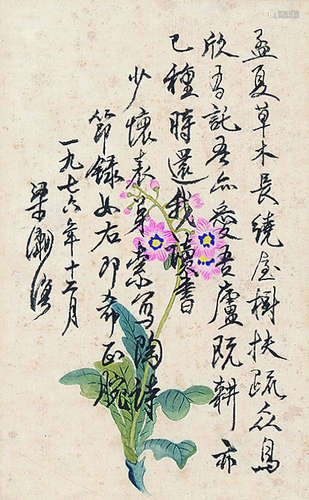 孟夏草木長繞屋樹扶疏众鳥
欣有託吾亦愛吾廬既耕亦
已種時還我讀書
少懷表弟索写陶詩
節録如右即希正腕
一九七六年十二月
梁漱溟